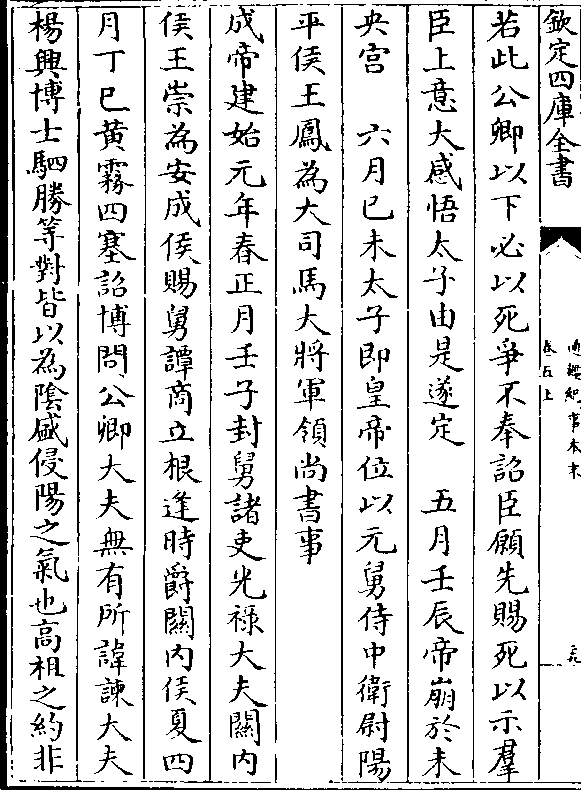 欽定四庫全書
通鑑紀事本末
卷五上
若此公卿以下必以死爭不奉詔臣願先賜死以示羣
臣上意大感悟太子由是遂定　五月壬辰帝崩於未
央宮　六月己未太子即皇帝位以元舅侍中衛尉陽
平侯王鳳為大司馬大將軍領尚書事
成帝建始元年春正月壬子封舅諸吏光祿大夫關內
侯王崇為安成侯賜舅譚商立根逢時爵關內侯夏四
月丁巳黃霧四塞詔博問公卿大夫無有所諱諫大夫
楊興博士駟勝等對皆以為陰盛侵陽之氣也高祖之約非